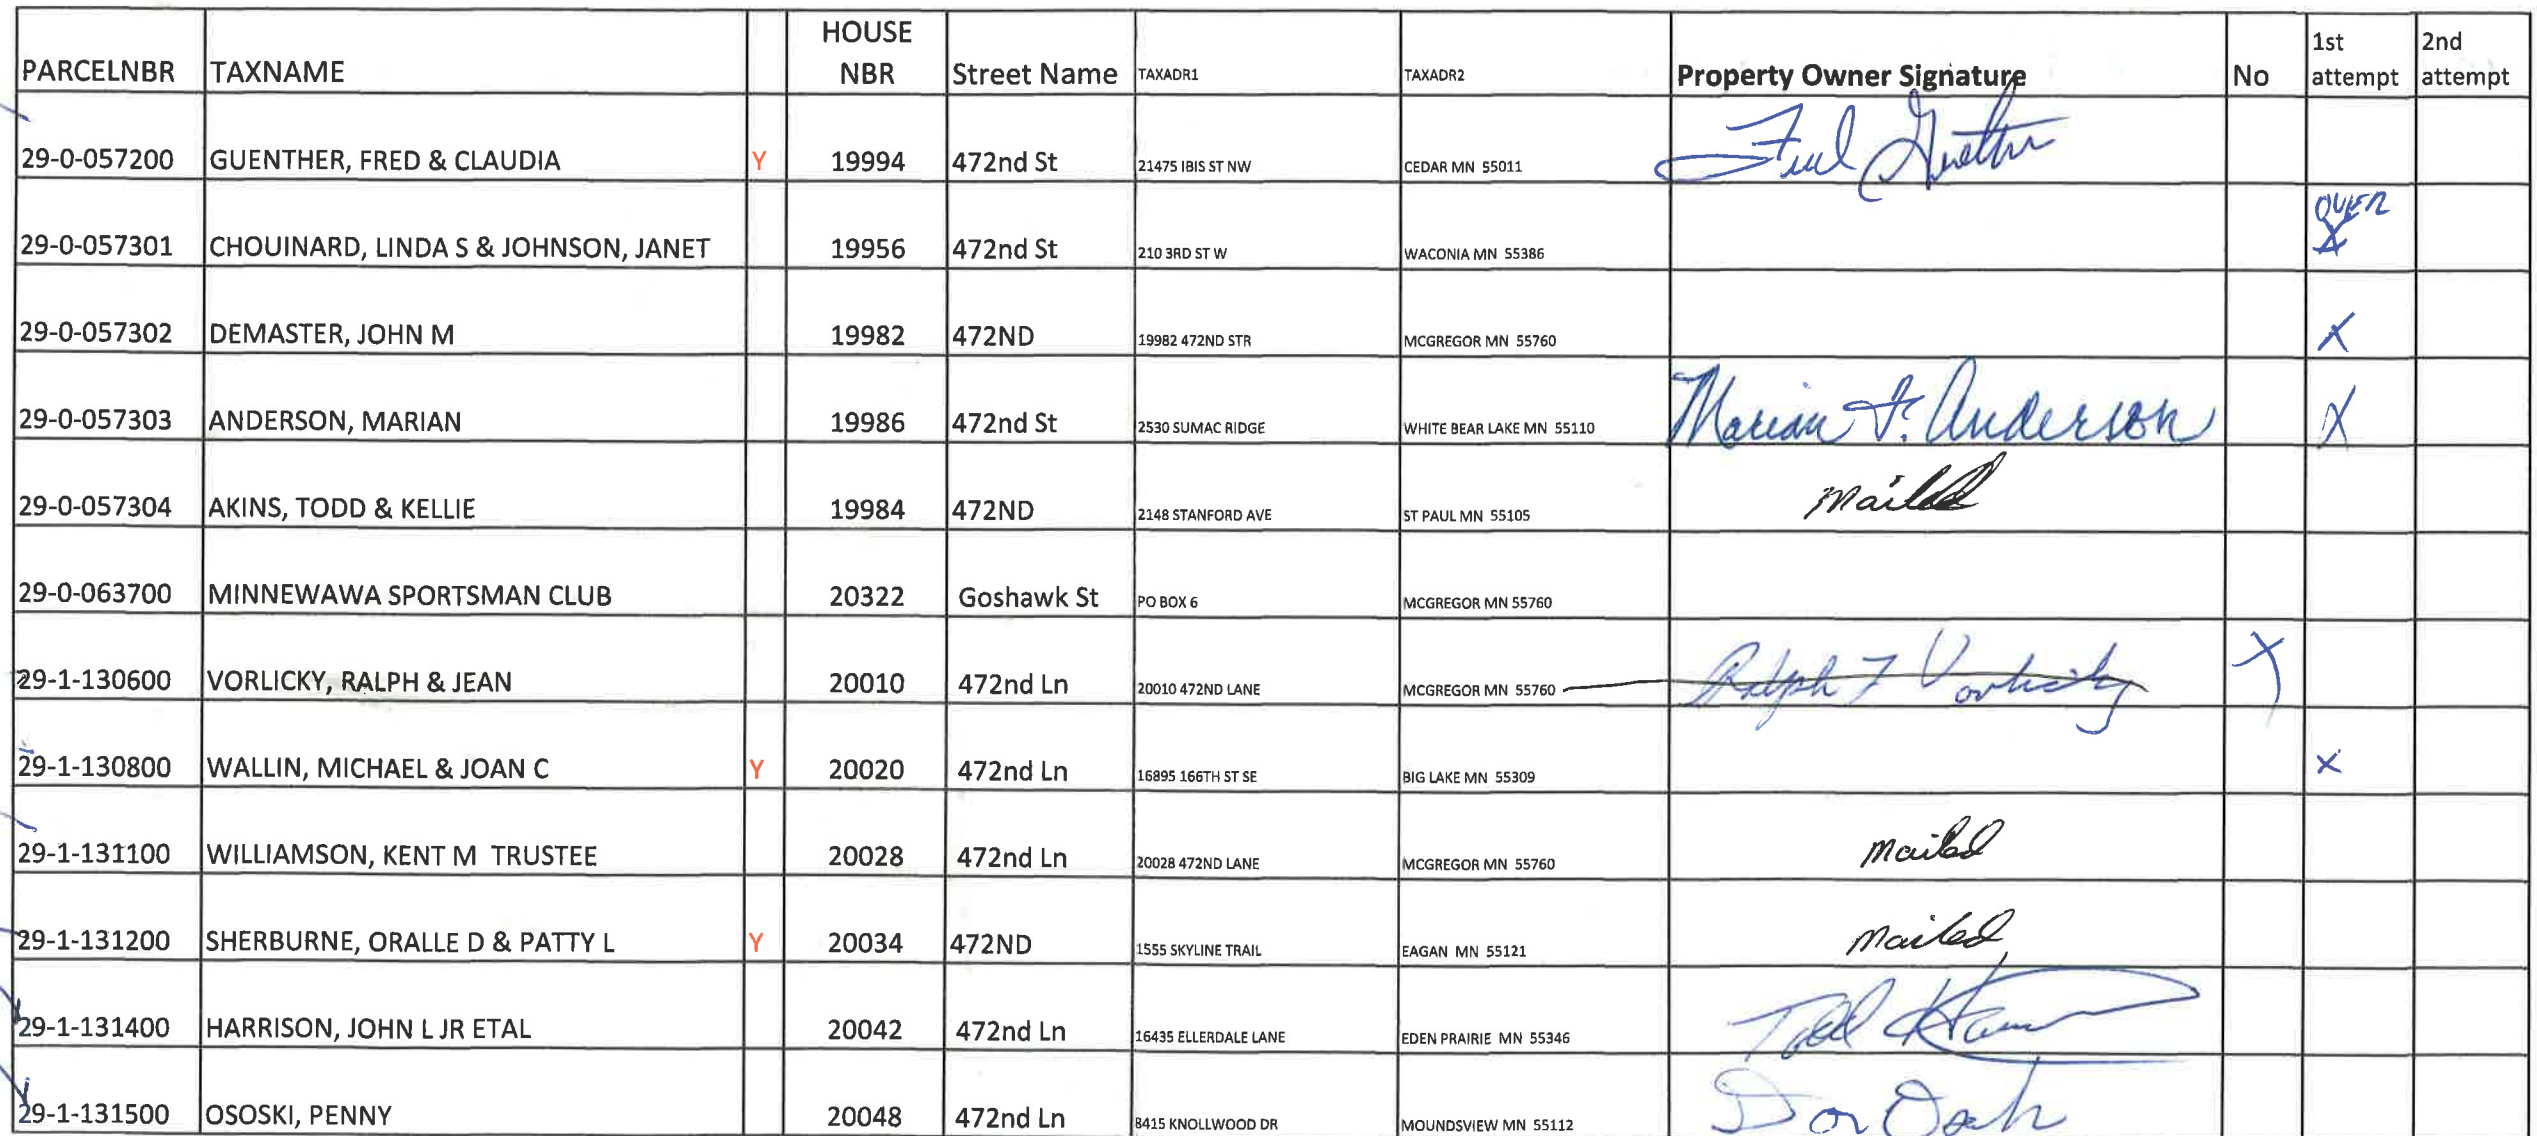 PARCELNBR TAXNAME HOUSE NBR Street Name TAXADR1 TAXADR2 Property Owner Signature No 1st attempt 2nd attempt
29-0-057200 GUENTHER, FRED & CLAUDIA Y 19994 472nd St 21475 IBIS ST NW CEDAR MN 55011 Fred Guenther
29-0-057301 CHOUINARD, LINDA S & JOHNSON, JANET 19956 472nd St 210 3RD ST W WACONIA MN 55386 OVER X
29-0-057302 DEMASTER, JOHN M 19982 472ND 19982 472ND STR MCGREGOR MN 55760 X
29-0-057303 ANDERSON, MARIAN 19986 472nd St 2530 SUMAC RIDGE WHITE BEAR LAKE MN 55110 Marian F. Anderson X
29-0-057304 AKINS, TODD & KELLIE 19984 472ND 2148 STANFORD AVE ST PAUL MN 55105 mailed
29-0-063700 MINNEWAWA SPORTSMAN CLUB 20322 Goshawk St PO BOX 6 MCGREGOR MN 55760
29-1-130600 VORLICKY, RALPH & JEAN 20010 472nd Ln 20010 472ND LANE MCGREGOR MN 55760 Ralph F Vorlicky X
29-1-130800 WALLIN, MICHAEL & JOAN C Y 20020 472nd Ln 16895 166TH ST SE BIG LAKE MN 55309 X
29-1-131100 WILLIAMSON, KENT M TRUSTEE 20028 472nd Ln 20028 472ND LANE MCGREGOR MN 55760 mailed
29-1-131200 SHERBURNE, ORALLE D & PATTY L Y 20034 472ND 1555 SKYLINE TRAIL EAGAN MN 55121 mailed
29-1-131400 HARRISON, JOHN L JR ETAL 20042 472nd Ln 16435 ELLERDALE LANE EDEN PRAIRIE MN 55346 Todd
29-1-131500 OSOSKI, PENNY 20048 472nd Ln 8415 KNOLLWOOD DR MOUNDSVIEW MN 55112 Don